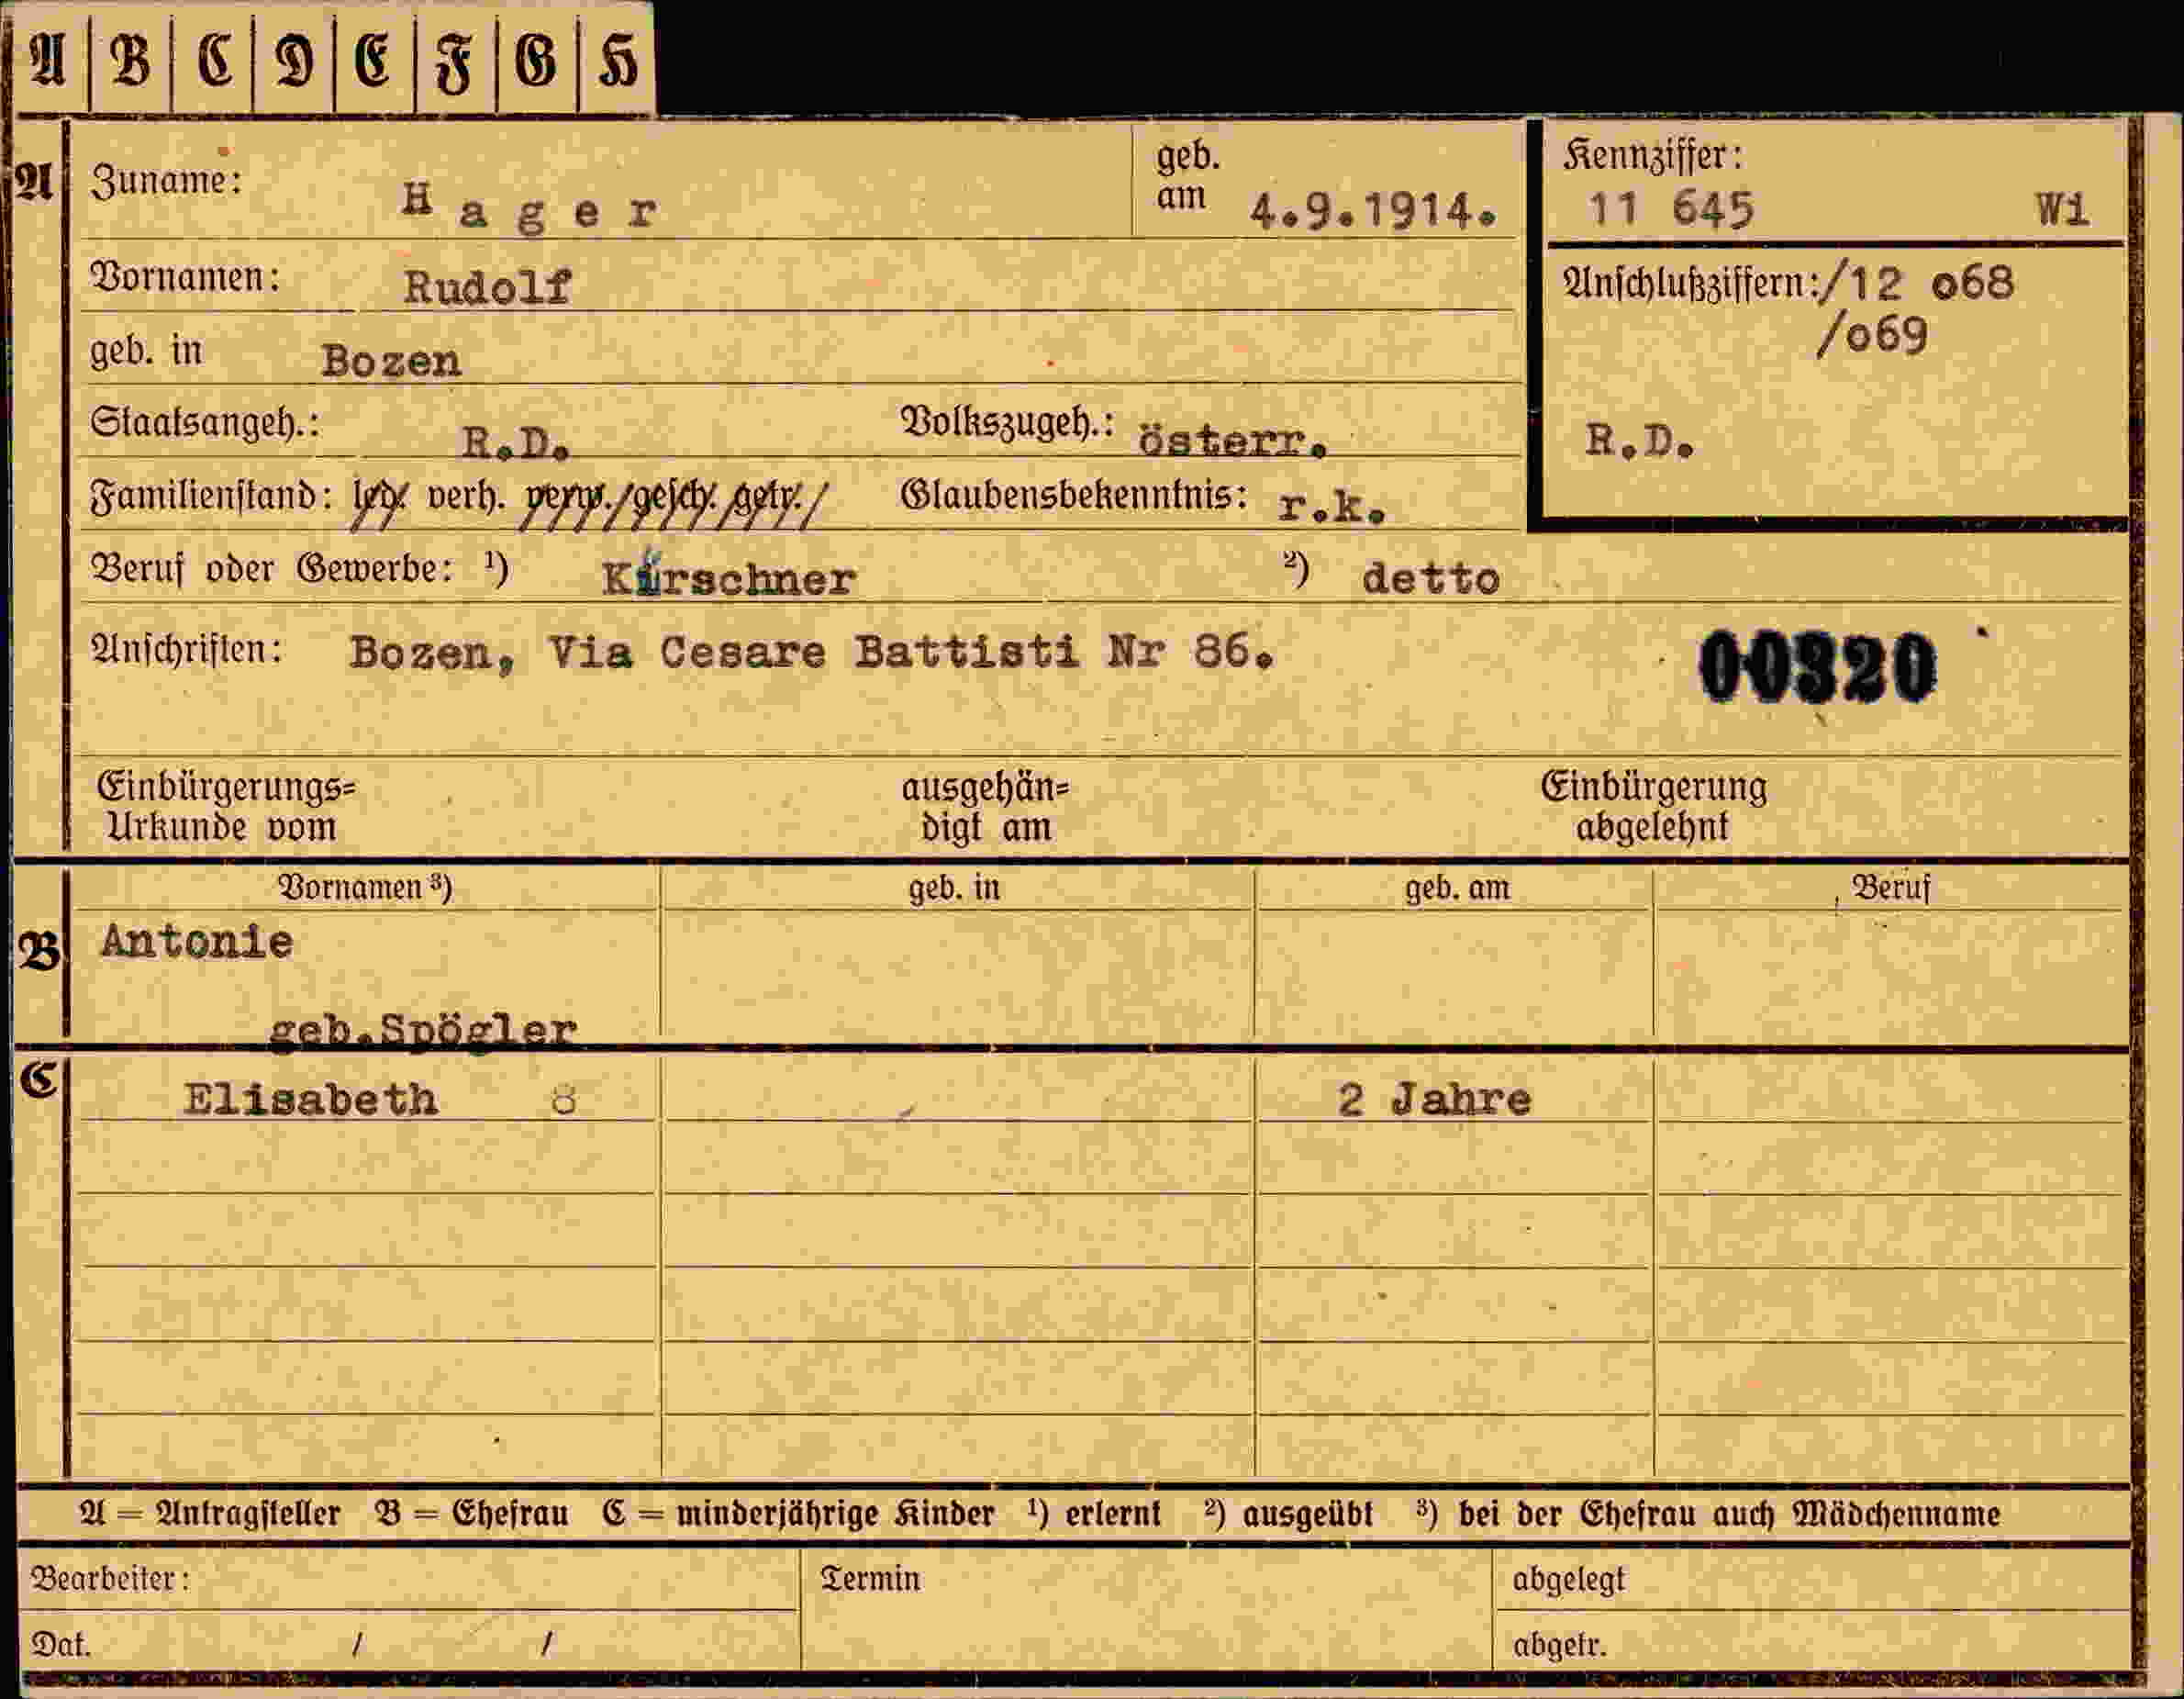 A B C D E F G H
A Zuname: Hager geb. am 4.9.1914. Kennziffer: 11 645 Wi
Vornamen: Rudolf Anschlußziffern:/12 o68
/o69
geb. in Bozen
Staatsangeh.: R.D. Volkszugeh.: österr. R.D.
Familienstand: led. verh. verw./gesch./getr./ Glaubensbekenntnis: r.k.
Beruf oder Gewerbe: ¹) Kürschner ²) detto
Anschriften: Bozen, Via Cesare Battisti Nr 86. 00320
Einbürgerungs= ausgehän= Einbürgerung
Urkunde vom digt am abgelehnt
Vornamen ³) geb. in geb. am Beruf
B Antonie
geb.Spögler
C Elisabeth 8 2 Jahre
A = Antragsteller B = Ehefrau C = minderjährige Kinder ¹) erlernt ²) ausgeübt ³) bei der Ehefrau auch Mädchenname
Bearbeiter: Termin abgelegt
Dat. / / abgetr.